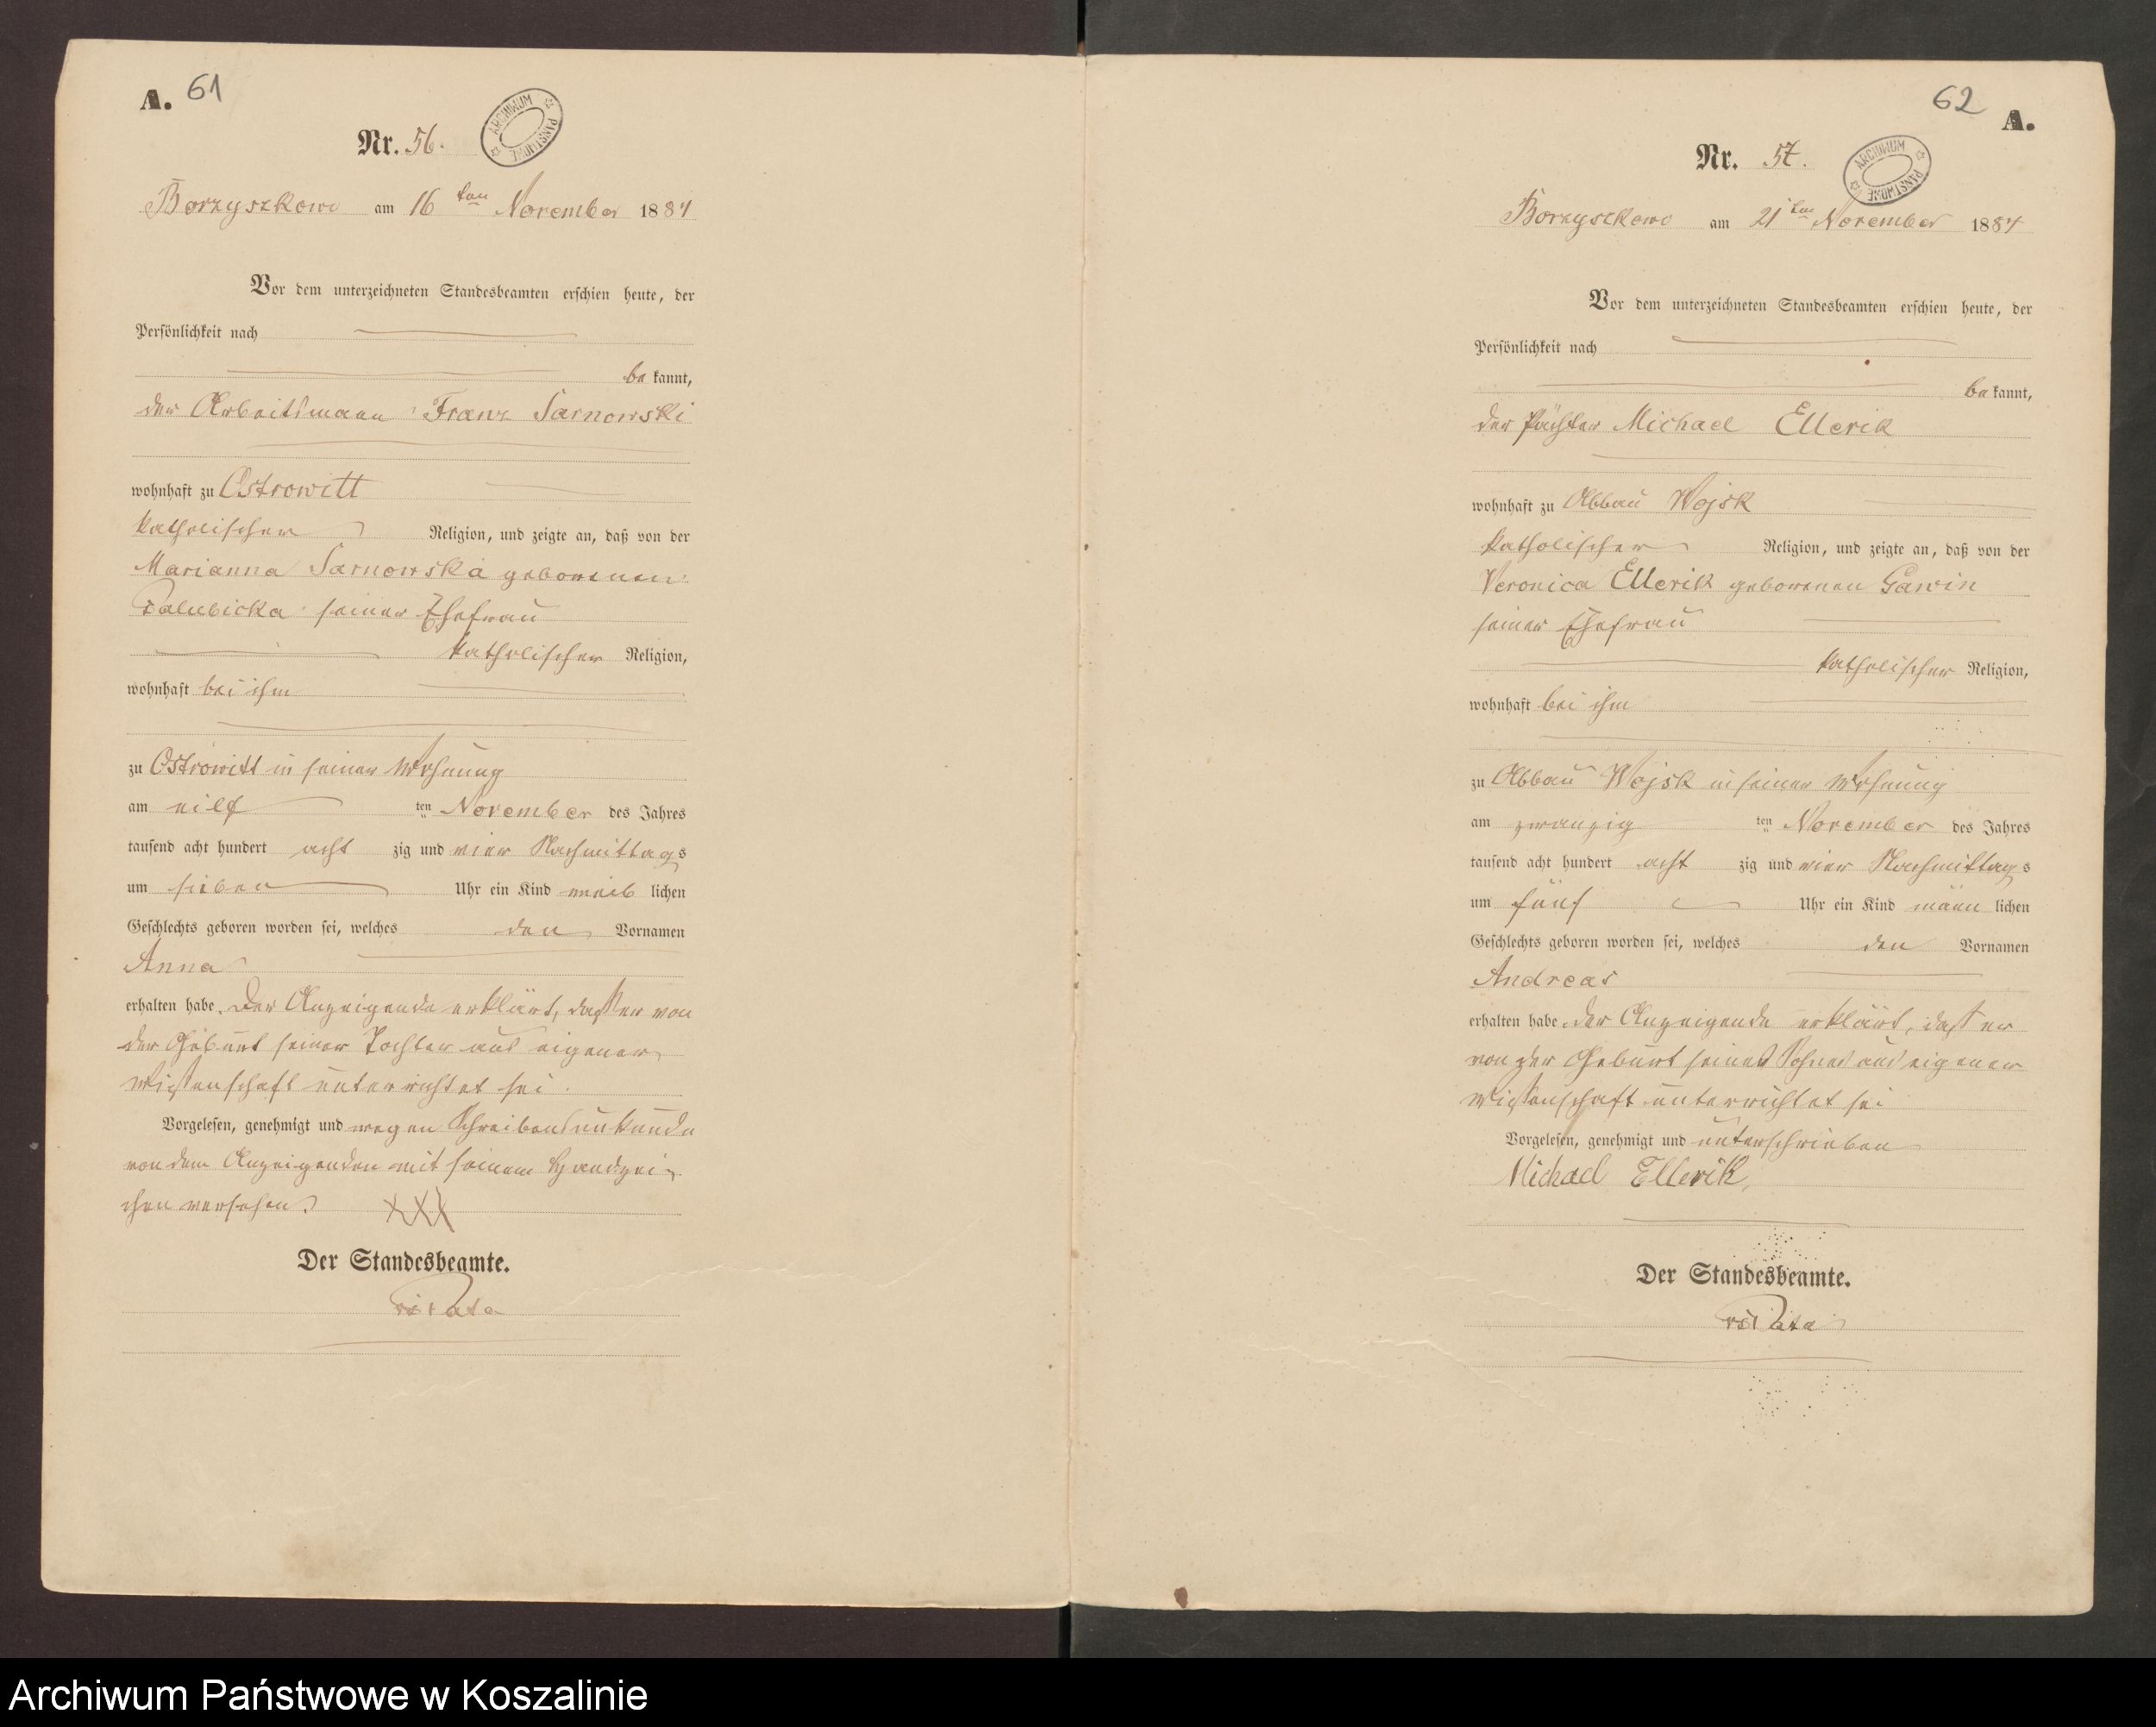 A. 61
ARCHIWUM PAŃSTWOWE
Nr. 56.
Borzyszkowo am 16ten November 1884
Vor dem unterzeichneten Standesbeamten erschien heute, der
Persönlichkeit nach
bekannt,
der Arbeitsmann Franz Sarnowski
wohnhaft zu Ostrowitt
katholischer Religion, und zeigte an, daß von der
Marianna Sarnowska geborenen
Palubicka seiner Ehefrau
katholischer Religion,
wohnhaft bei ihm
zu Ostrowitt in seiner Wohnung
am eilf ten November des Jahres
tausend acht hundert acht zig und vier Nachmittags
um sieben Uhr ein Kind weiblichen
Geschlechts geboren worden sei, welches den Vornamen
Anna
erhalten habe. Der Anzeigende erklärt, daß er von
der Geburt seiner Tochter aus eigener
Wissenschaft unterrichtet sei.
Vorgelesen, genehmigt und wegen Schreibensunkunde
von dem Anzeigenden mit seinem Handzei-
chen versehen. XXX
Der Standesbeamte.
62 A.
ARCHIWUM PAŃSTWOWE
Nr. 57.
Borzyszkowo am 21ten November 1884
Vor dem unterzeichneten Standesbeamten erschien heute, der
Persönlichkeit nach
bekannt,
der Pächter Michael Ellerik
wohnhaft zu Abbau Wojsk
katholischer Religion, und zeigte an, daß von der
Veronica Ellerik geborenen Gawin
seiner Ehefrau
katholischer Religion,
wohnhaft bei ihm
zu Abbau Wojsk in seiner Wohnung
am zwanzig ten November des Jahres
tausend acht hundert acht zig und vier Nachmittags
um fünf Uhr ein Kind männlichen
Geschlechts geboren worden sei, welches den Vornamen
Andreas
erhalten habe. Der Anzeigende erklärt, daß er
von der Geburt seines Sohnes aus eigener
Wissenschaft unterrichtet sei
Vorgelesen, genehmigt und unterschrieben
Michael Ellerik,
Der Standesbeamte.
Archiwum Państwowe w Koszalinie